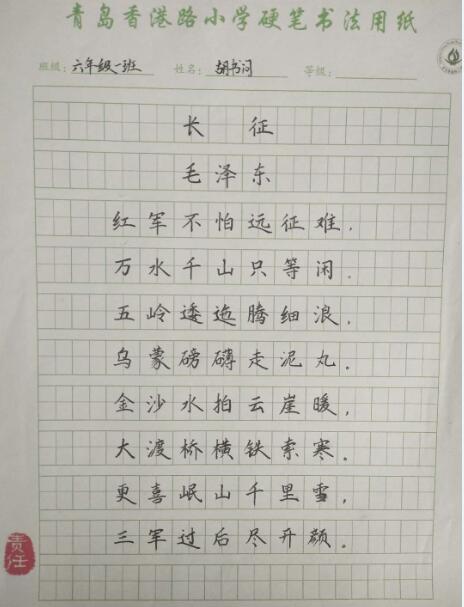 青岛香港路小学硬笔书法用纸
班级：六年级一班 姓名：胡书问 等级：
长 征
毛泽东
红军不怕远征难，
万水千山只等闲．
五岭逶迤腾细浪，
乌蒙磅礴走泥丸．
金沙水拍云崖暖，
大渡桥横铁索寒．
更喜岷山千里雪，
三军过后尽开颜．
责任